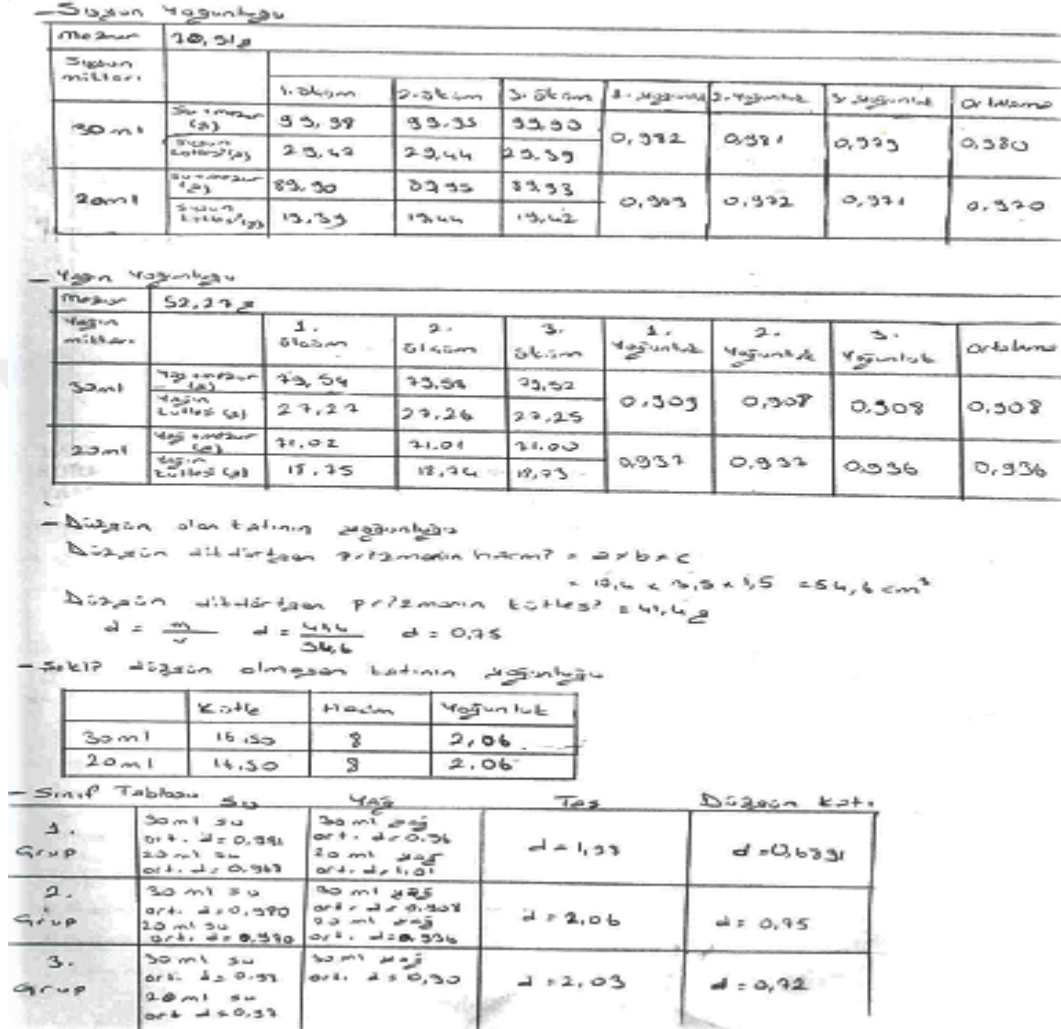 - Suyun Yoğunluğu
mezur 70,51g
Suyun miktarı
1. ölçüm 2. ölçüm 3. ölçüm 1. yoğunluk 2. yoğunluk 3. yoğunluk Ortalama
30 ml Su + mezur (g) 99,98 99,95 99,90 0,982 0,981 0,979 0,980
Suyun kütlesi (g) 29,47 29,44 29,39
20ml su + mezur (g) 89,90 89,95 89,93 0,969 0,972 0,971 0,970
Suyun kütlesi (g) 19,39 19,44 19,42
- Yağın Yoğunluğu
mezur 52,27g
Yağın miktarı 1. ölçüm 2. ölçüm 3. ölçüm 1. Yoğunluk 2. Yoğunluk 3. Yoğunluk Ortalama
30ml Yağ + mezur (g) 79,54 79,53 79,52 0,909 0,908 0,908 0,908
Yağın kütlesi (g) 27,27 27,26 27,25
20ml Yağ + mezur (g) 71,02 71,01 71,00 0,937 0,937 0,936 0,936
Yağın kütlesi (g) 18,75 18,74 18,73
- Düzgün olan katının yoğunluğu
Düzgün dikdörtgen prizmanın hacmi = a x b x c
= x 1,5 = 54,6 cm³
Düzgün dikdörtgen prizmanın kütlesi = 41,4 g
d = m/v d = 41,4/54,6 d = 0,75
- Şekli düzgün olmayan katının yoğunluğu
Kütle Hacim Yoğunluk
30ml 16.50 8 2,06
20ml 8 2.06
- Sınıf Tablosu
Su Yağ Taş Düzgün Katı
1. Grup
30ml su 30ml yağ
ort. d= ort. d=0,96
20 ml su 20 ml yağ
ort. d= ort. d=1,01
d=1,99 d=0,6891
2. Grup
30 ml su 30 ml yağ
ort. d=0,980 ort. d=0,908
20 ml su 20 ml yağ
ort. d=0,970 ort. d=0,936
d=2,06 d=0,75
3. Grup
30ml su 30ml yağ
ort. d=0,97 ort. d=0,90
20ml su
ort d=0,97
d=2,03 d=0,72